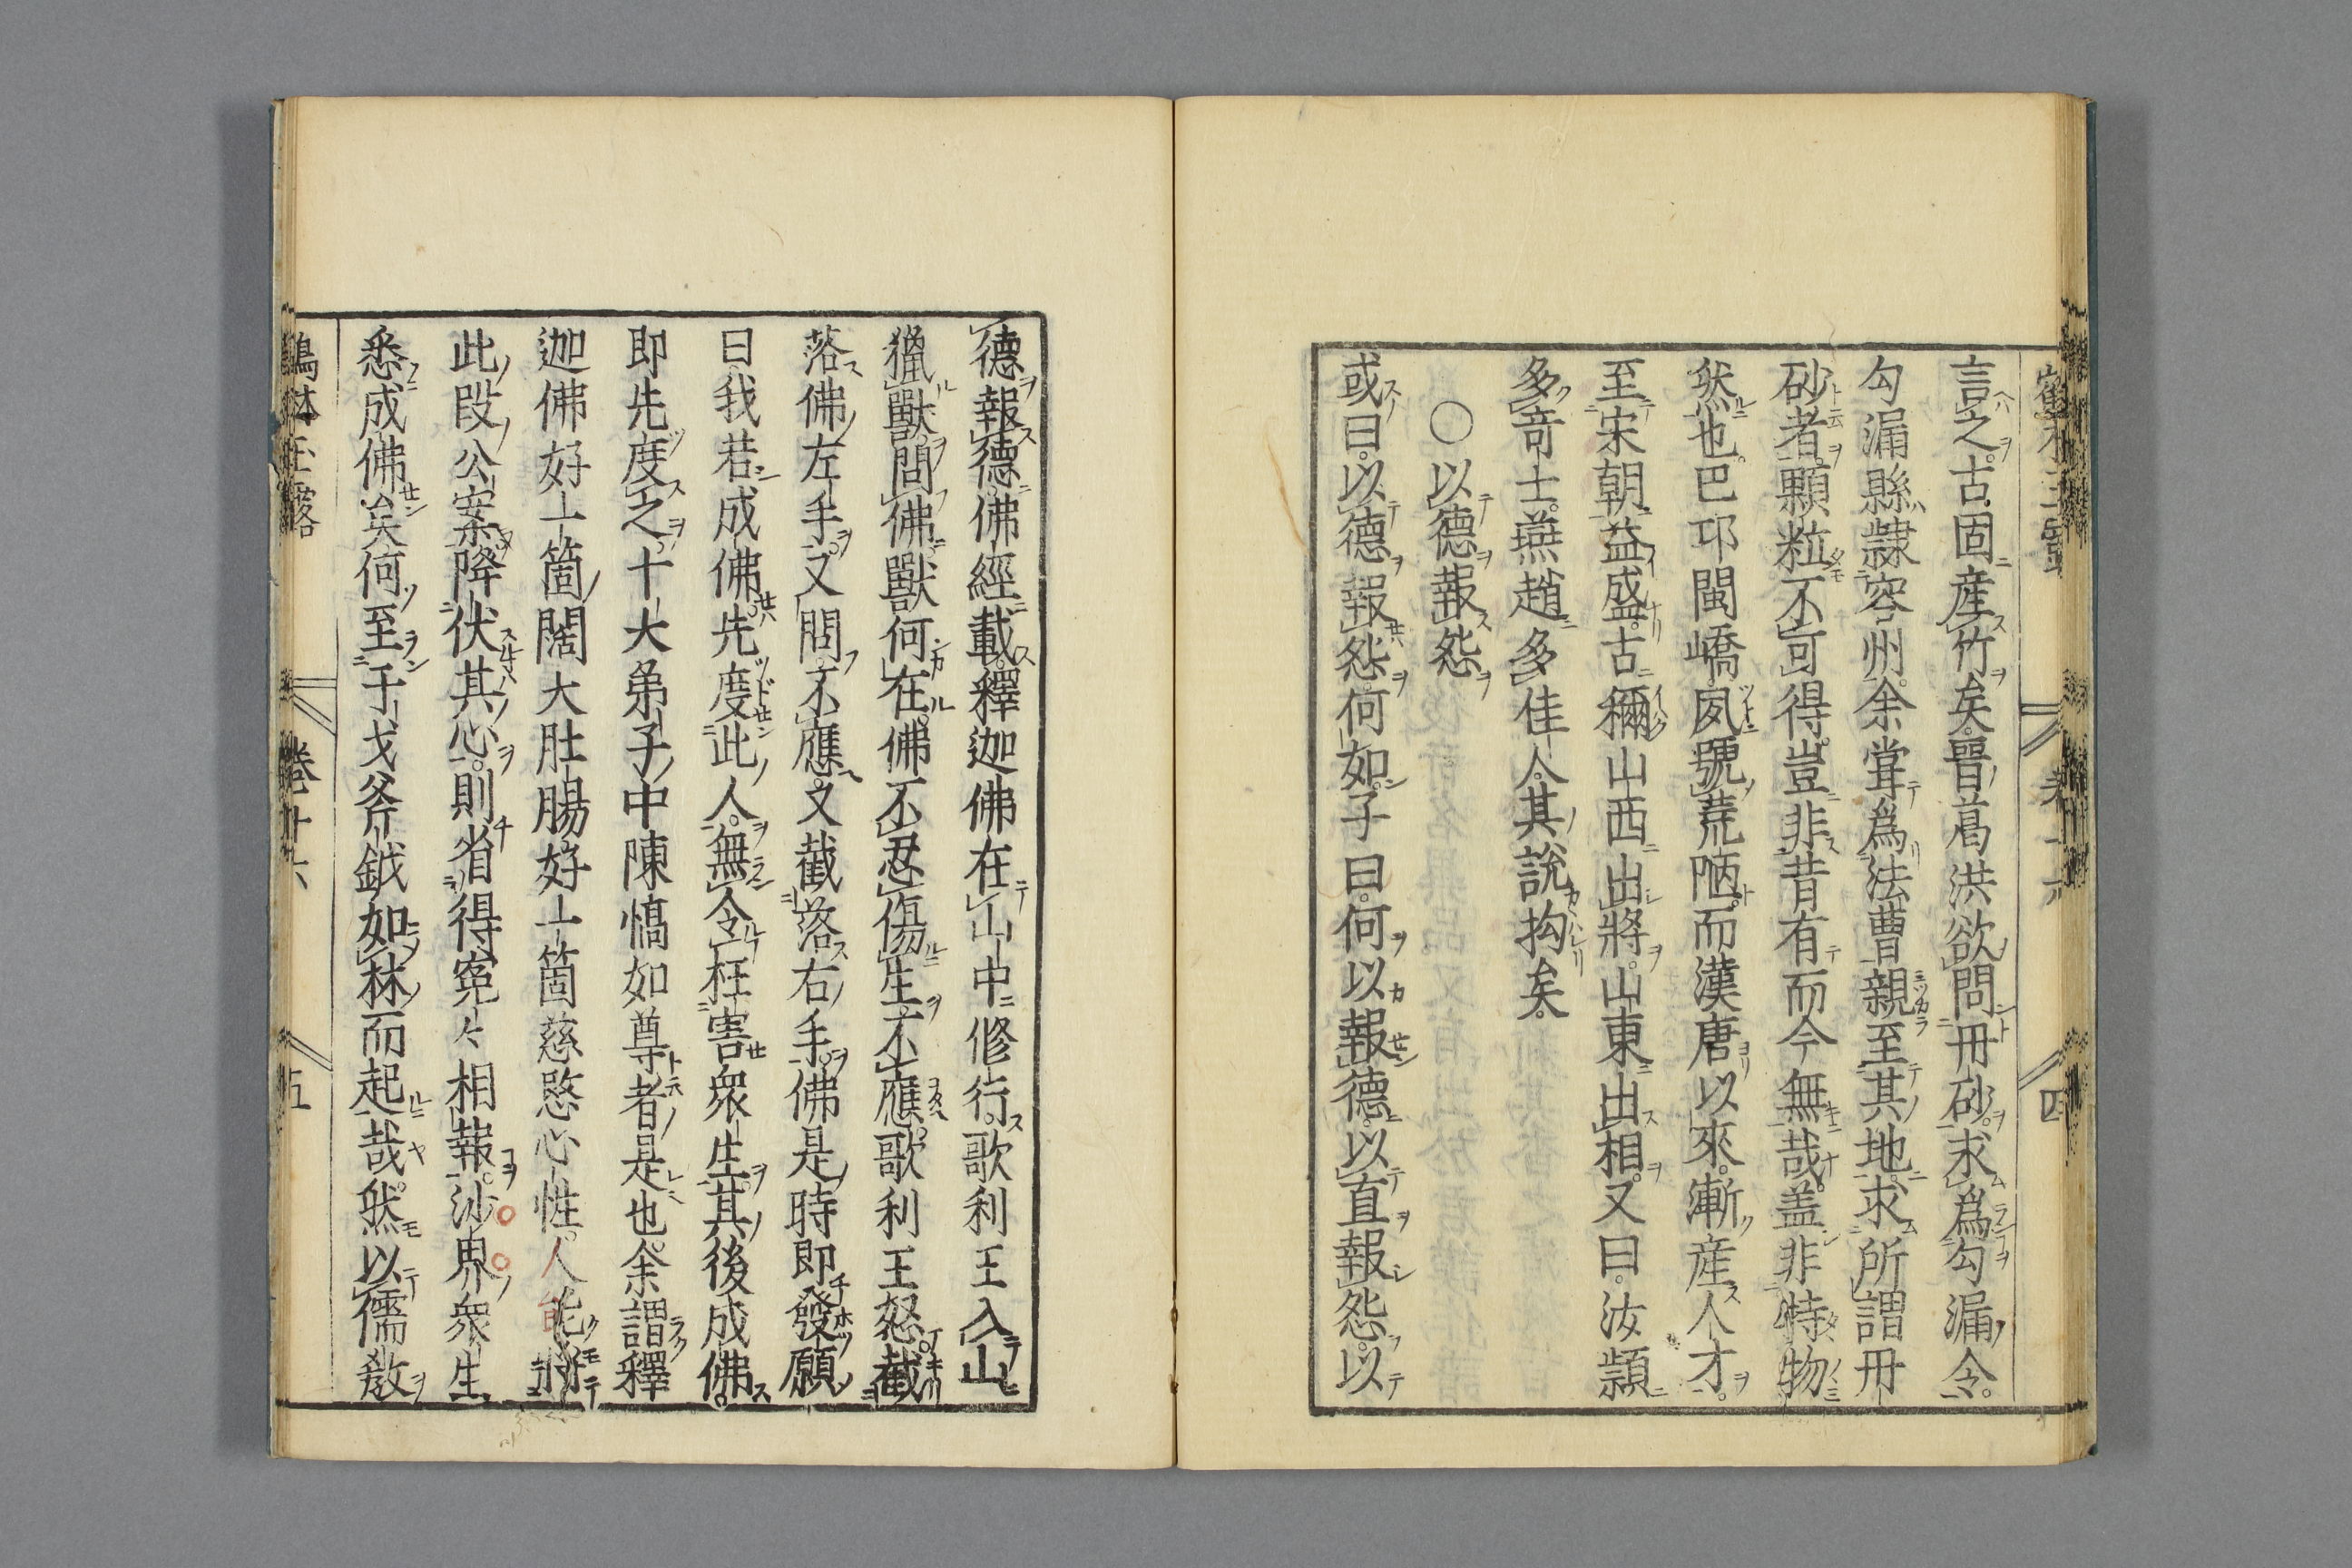 言之古固產竹矣晉葛洪欲問丹砂求爲勾漏令
勾漏縣隷容州余甞爲法曹親至其地求所謂丹
砂者顆粒不可得豈非昔有而今無哉盖非特物
然也巴邛閩嶠夙號荒陋而漢唐以來漸產人才
至宋朝益盛古穪山西出將山東出相又曰汝頴
多奇士燕趙多佳人其說拘矣
○以德報怨
或曰以德報怨何如子曰何以報德以直報怨以
德報德佛經載釋迦佛在山中修行歌利王入山
獵獸問佛獸何在佛不忍傷生不應歌利王怒截
落佛左手又問不應又截落右手佛是時即發願
曰我若成佛先度此人無令枉害衆生其後成佛
即先度之十大弟子中陳憍如尊者是也余謂釋
迦佛好一箇闊大肚腸好一箇慈愍心性人能將
此段公案降伏其心則省得寃々相報沙界衆生
悉成佛矣何至干戈斧鉞如林而起哉然以儒教
卷十六
五